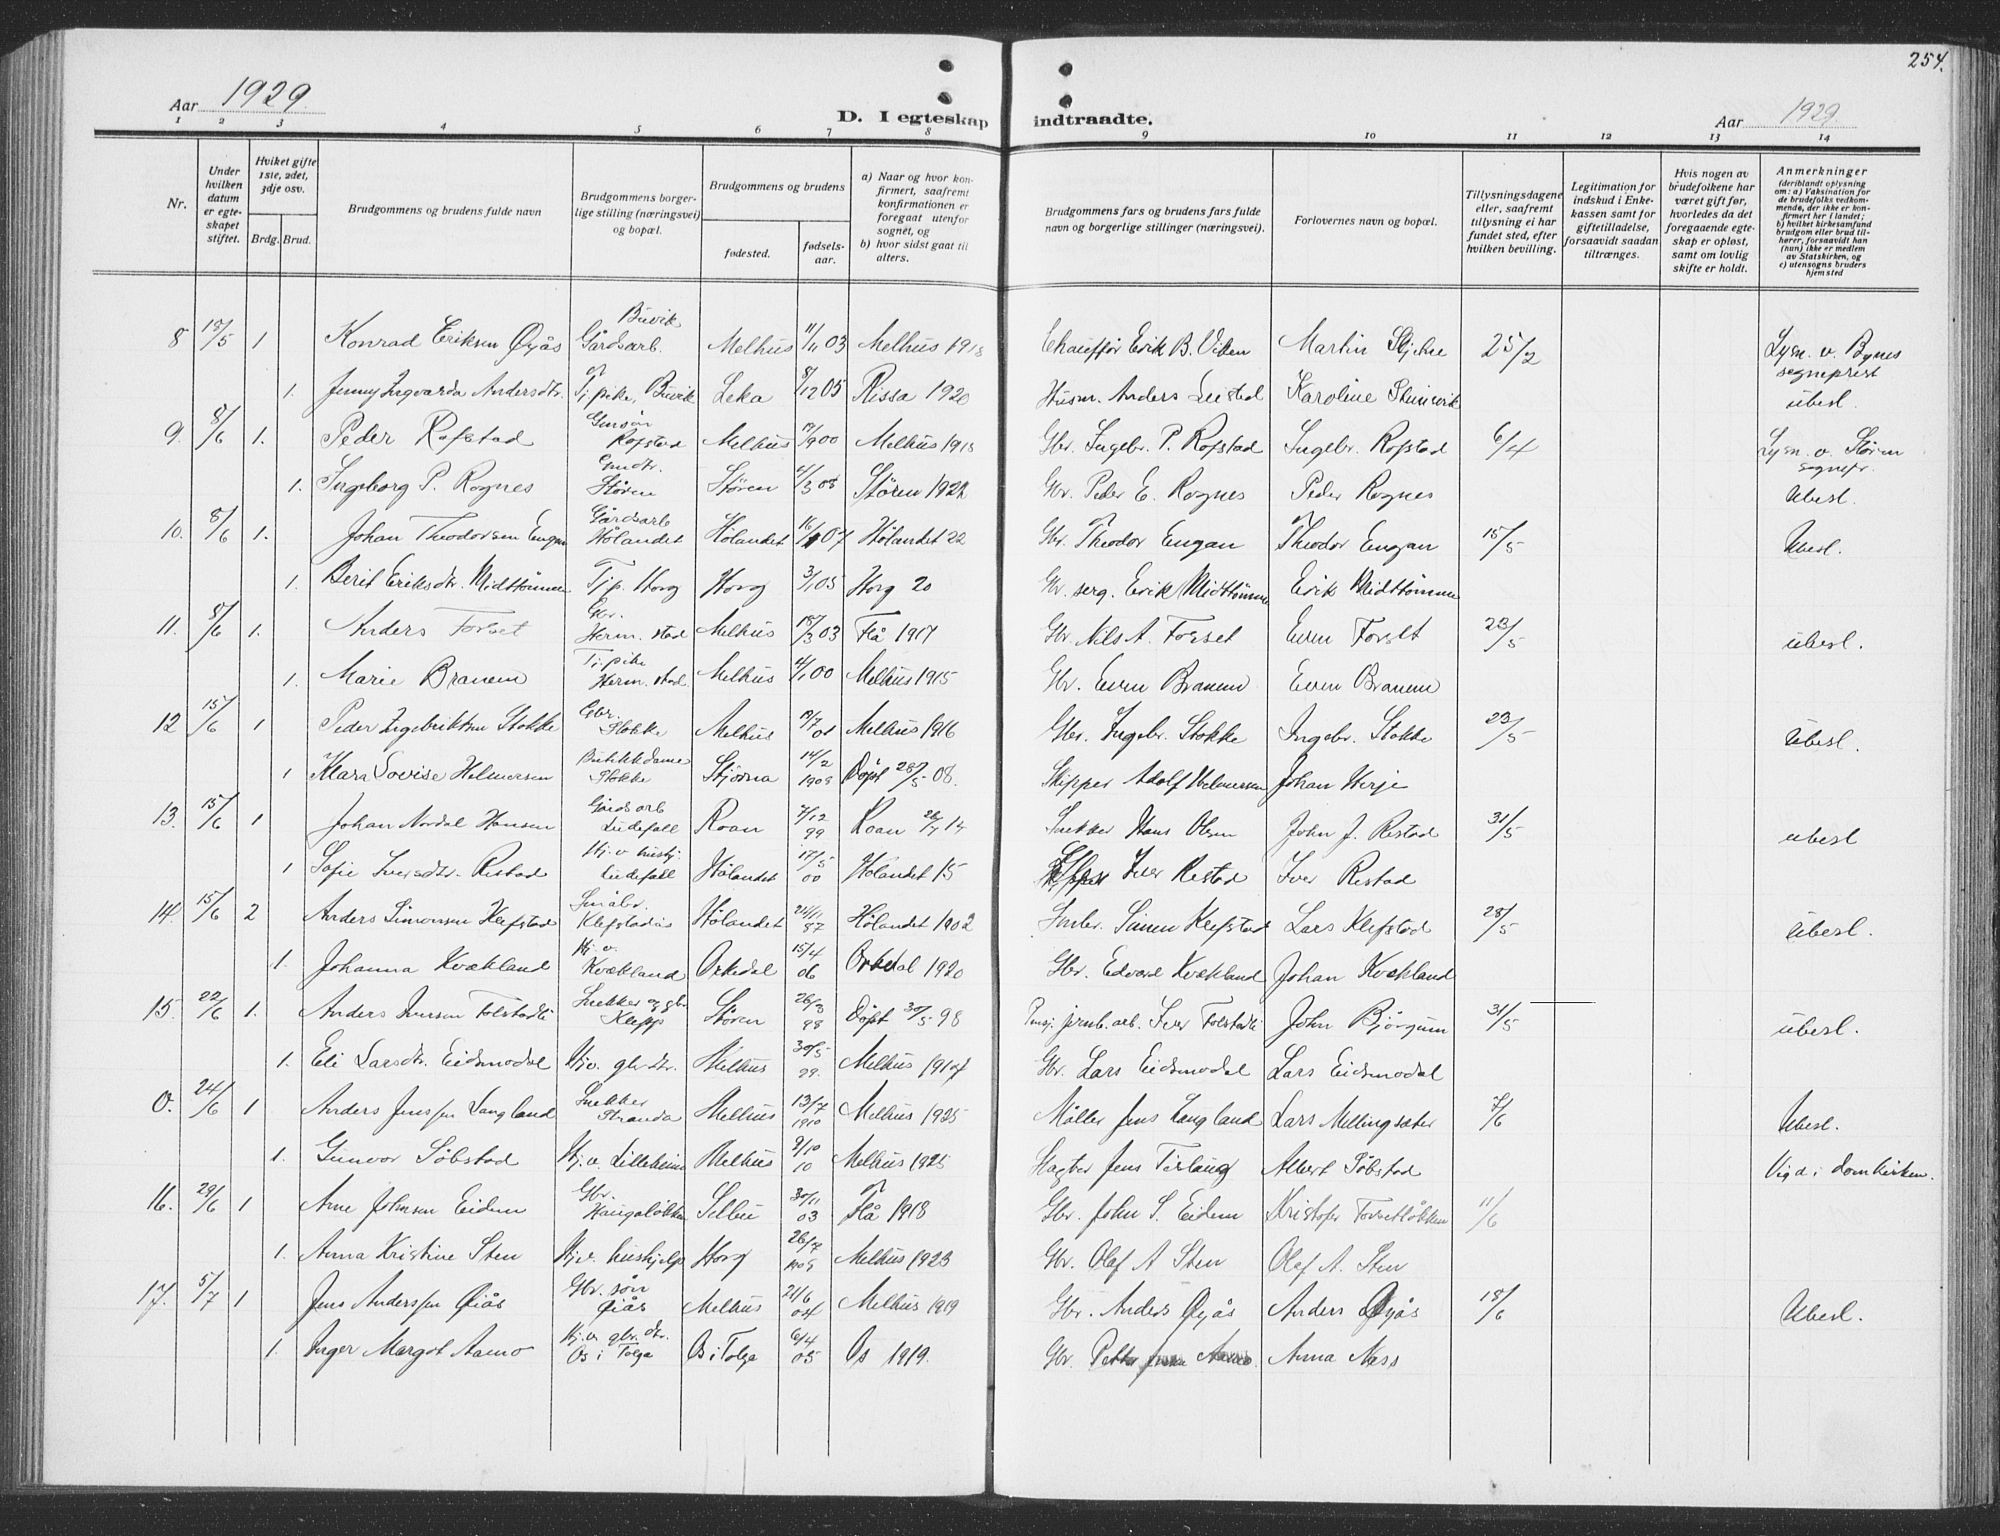 254.
Aar 1929
D. I egteskap indtraadte.
Aar 1929.
1 2 3 4 5 6 7 8 9 10 11 12 13 14
Nr.
Under hvilken datum er egteskapet stiftet.
Hviket gifte 1ste, 2det, 3dje osv.
Brdg. Brud.
Brudgommens og brudens fulde navn
Brudgommens borgerlige stilling (næringsvei) og bopæl.
Brudgommens og brudens
fødested.
fødselsaar.
a) Naar og hvor konfirmert, saafremt konfirmationen er foregaat utenfor sognet, og
b) hvor sidst gaat til alters.
Brudgommens fars og brudens fars fulde navn og borgerlige stillinger (næringsvei).
Forlovernes navn og bopæl.
Tillysningsdagene eller, saafremt tillysning ei har fundet sted, efter hvilken bevilling.
Legitimation for indskud i Enkekassen samt for giftetilladelse, forsaavidt saadan tiltrænges.
Hvis nogen av brudefolkene har været gift før, hvorledes da det foregaaende egteskap er opløst, samt om lovlig skifte er holdt.
Anmerkninger (deriblandt oplysning om: a) Vaksination for de brudefolks vedkommende, der ikke er konfirmert her i landet; b) hvilket kirkesamfund brudgom eller brud tilhører, forsaavidt han (hun) ikke er medlem av Statskirken, og c) utensogns bruders hjemsted
8 18/5 1 Konrad Eriksen Øyås Buvik Gårdsarb. Melhus 11/11 03 Melhus 1918 Chauffør Erik B. Viken Martin Skjetne 25/2 Lysn. v. Bynes sogneprest
1. Jenny Ingvarda Andersdtr. Tj.pike, Buvik Leka 8/12 05 Rissa 1920 Husm. Anders Karoline ubesl.
9. 8/6 1. Peder Rofstad Gmsøn Rofstad Melhus 17/9 00 Melhus 1915 Gbr. Ingebr. P. Rofstad Ingebr. Rofstad 6/4 Lysn. v. Støren sognepr.
1. Ingeborg P. Rognes Gmdtr. Støren Støren 4/3 08 Støren 1922 Gbr. Peder E. Rognes Peder Rognes Ubesl.
10. 8/6 1. Johan Theodorsen Engan Gårdsarb Hølandet Hølandet 16/1 07 Hølandet 22 Gbr. Theodor Engan Theodor Engan 15/5 Ubesl.
1. Berit Eriksdtr. Midttømme Tj.p. Horg Horg 3/1 05 Horg 20 Gbr. serg. Erik Midttømme Erik Midttømme
11. 8/6 1. Anders Forset Gbr. Herm.stad Melhus 18/3 03 Flå 1917 Gbr. Nils A. Forset Even Forset 23/5 ubesl.
1. Marie Branem Tj.pike Herm.stad Melhus 4/1 00 Melhus 1915 Gbr. Even Branem Even Branem
12 15/6 1 Peder Ingebriktsen Stokke Gbr. Stokke Melhus 19/7 01 Melhus 1916 Gbr. Ingebr. Stokke Ingebr. Stokke 23/5 Ubesl.
1 Klara Lovise Helmersen Butikkdame Stokke Stjørna 14/2 1908 Døpt 28/5 08. Skipper Adolf Helmersen Johan Herje
13. 15/6 1 Johan Nordal Hansen Gårdsarb Ludefall Roan 7/12 99 Roan 14 Snekker Hans Olsen John J. Restad 31/5 ubesl
1 Sofie Iversdtr. Restad Hj. v. huslj. Ludefall Hølandet 17/5 00 Hølandet 15 Iver Restad Iver Restad
14. 15/6 2 Anders Simonsen Klefstad Småbr. Klefstadås Hølandet 24/11 87 Hølandet 1902 Småbr. Simen Klefstad Lars Klefstad 28/5 Ubesl.
1. Johanna Kvækland Hj. v. Kvækland Orkedal 15/4 06 Orkedal 1920 Gbr. Edvard Kvækland Johan Kvækland
15. 22/6 1. Anders Iversen Folstadli Snekker og gbr. Klepp Støren 26/3 98 Døpt 30/5 98 Pensj. jernb. arb. Iver Folstadli John Bjørgum 31/5 ubesl.
1. Eli Larsdtr. Eidsmodal Hjv. gbr.dtr. Melhus 30/5 99. Melhus 1914 Gbr. Lars Eidsmodal Lars Eidsmodal
0. 24/6 1 Anders Jenssen Langland Snekker Stranda Melhus 13/7 1910 Melhus 1925 Møller Jens Langland Lars Mellingsæter 7/6 Ubesl.
1. Gunvor Søbstad Hj.v. Lilleheim Melhus 9/10 10 Melhus 1925 Jens Albert Søbstad Vigd i domkirken.
16. 29/6 1 Arne Johnsen Eidem Gbr. Haugaløkken Selbu 30/11 03 Flå 1918 Gbr. John S. Eidem Kristofer Forsetløkken 11/6
1. Anna Kristine Sten Hjv. hushjelp Horg 26/7 1908 Melhus 1923 Gbr. Olaf A Sten Olaf A. Sten
17. 5/7 1 Jens Anderssen Øiås Gbr. søn Øiås Melhus 21/6 04 Melhus 1919 Gbr. Anders Øyås Anders Øyås 18/6 Ubesl.
1. Inger Margot Aamo Hj.v. gbr. dtr. Os i Tolga Os i Tolga 6/4 05 Os 1919. Gbr. Petter Aamo. Anna Næss